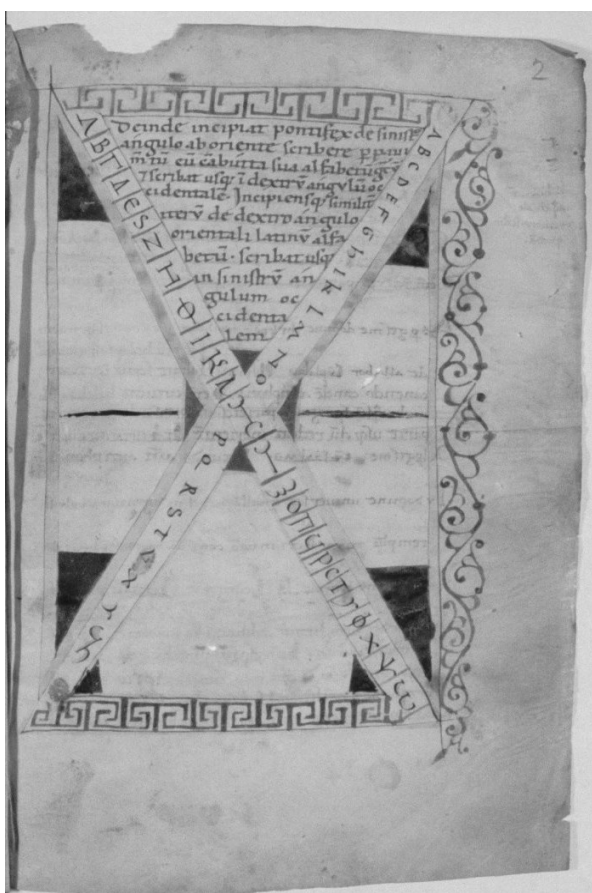 2
Deinde incipiat pontifex de sinistro
angulo ab oriente scribere p pavi
m̄tū cū cābutta sua alfabetū
& scribat usq; ī dextrū angulū oc
cidentale. Incipiensq; simili
iterū de dextro angulo
orientali latinū alfa
betū. scribat usq;
in sinistrū an
gulum oc
cidenta
lem
A B C D E F G h i k l m N O
P Q R S T V X Y
Α Β Γ Δ Ε Ζ Η Θ Ι Κ Λ
Ο Π Ρ С Τ Υ Φ Χ Ψ ω